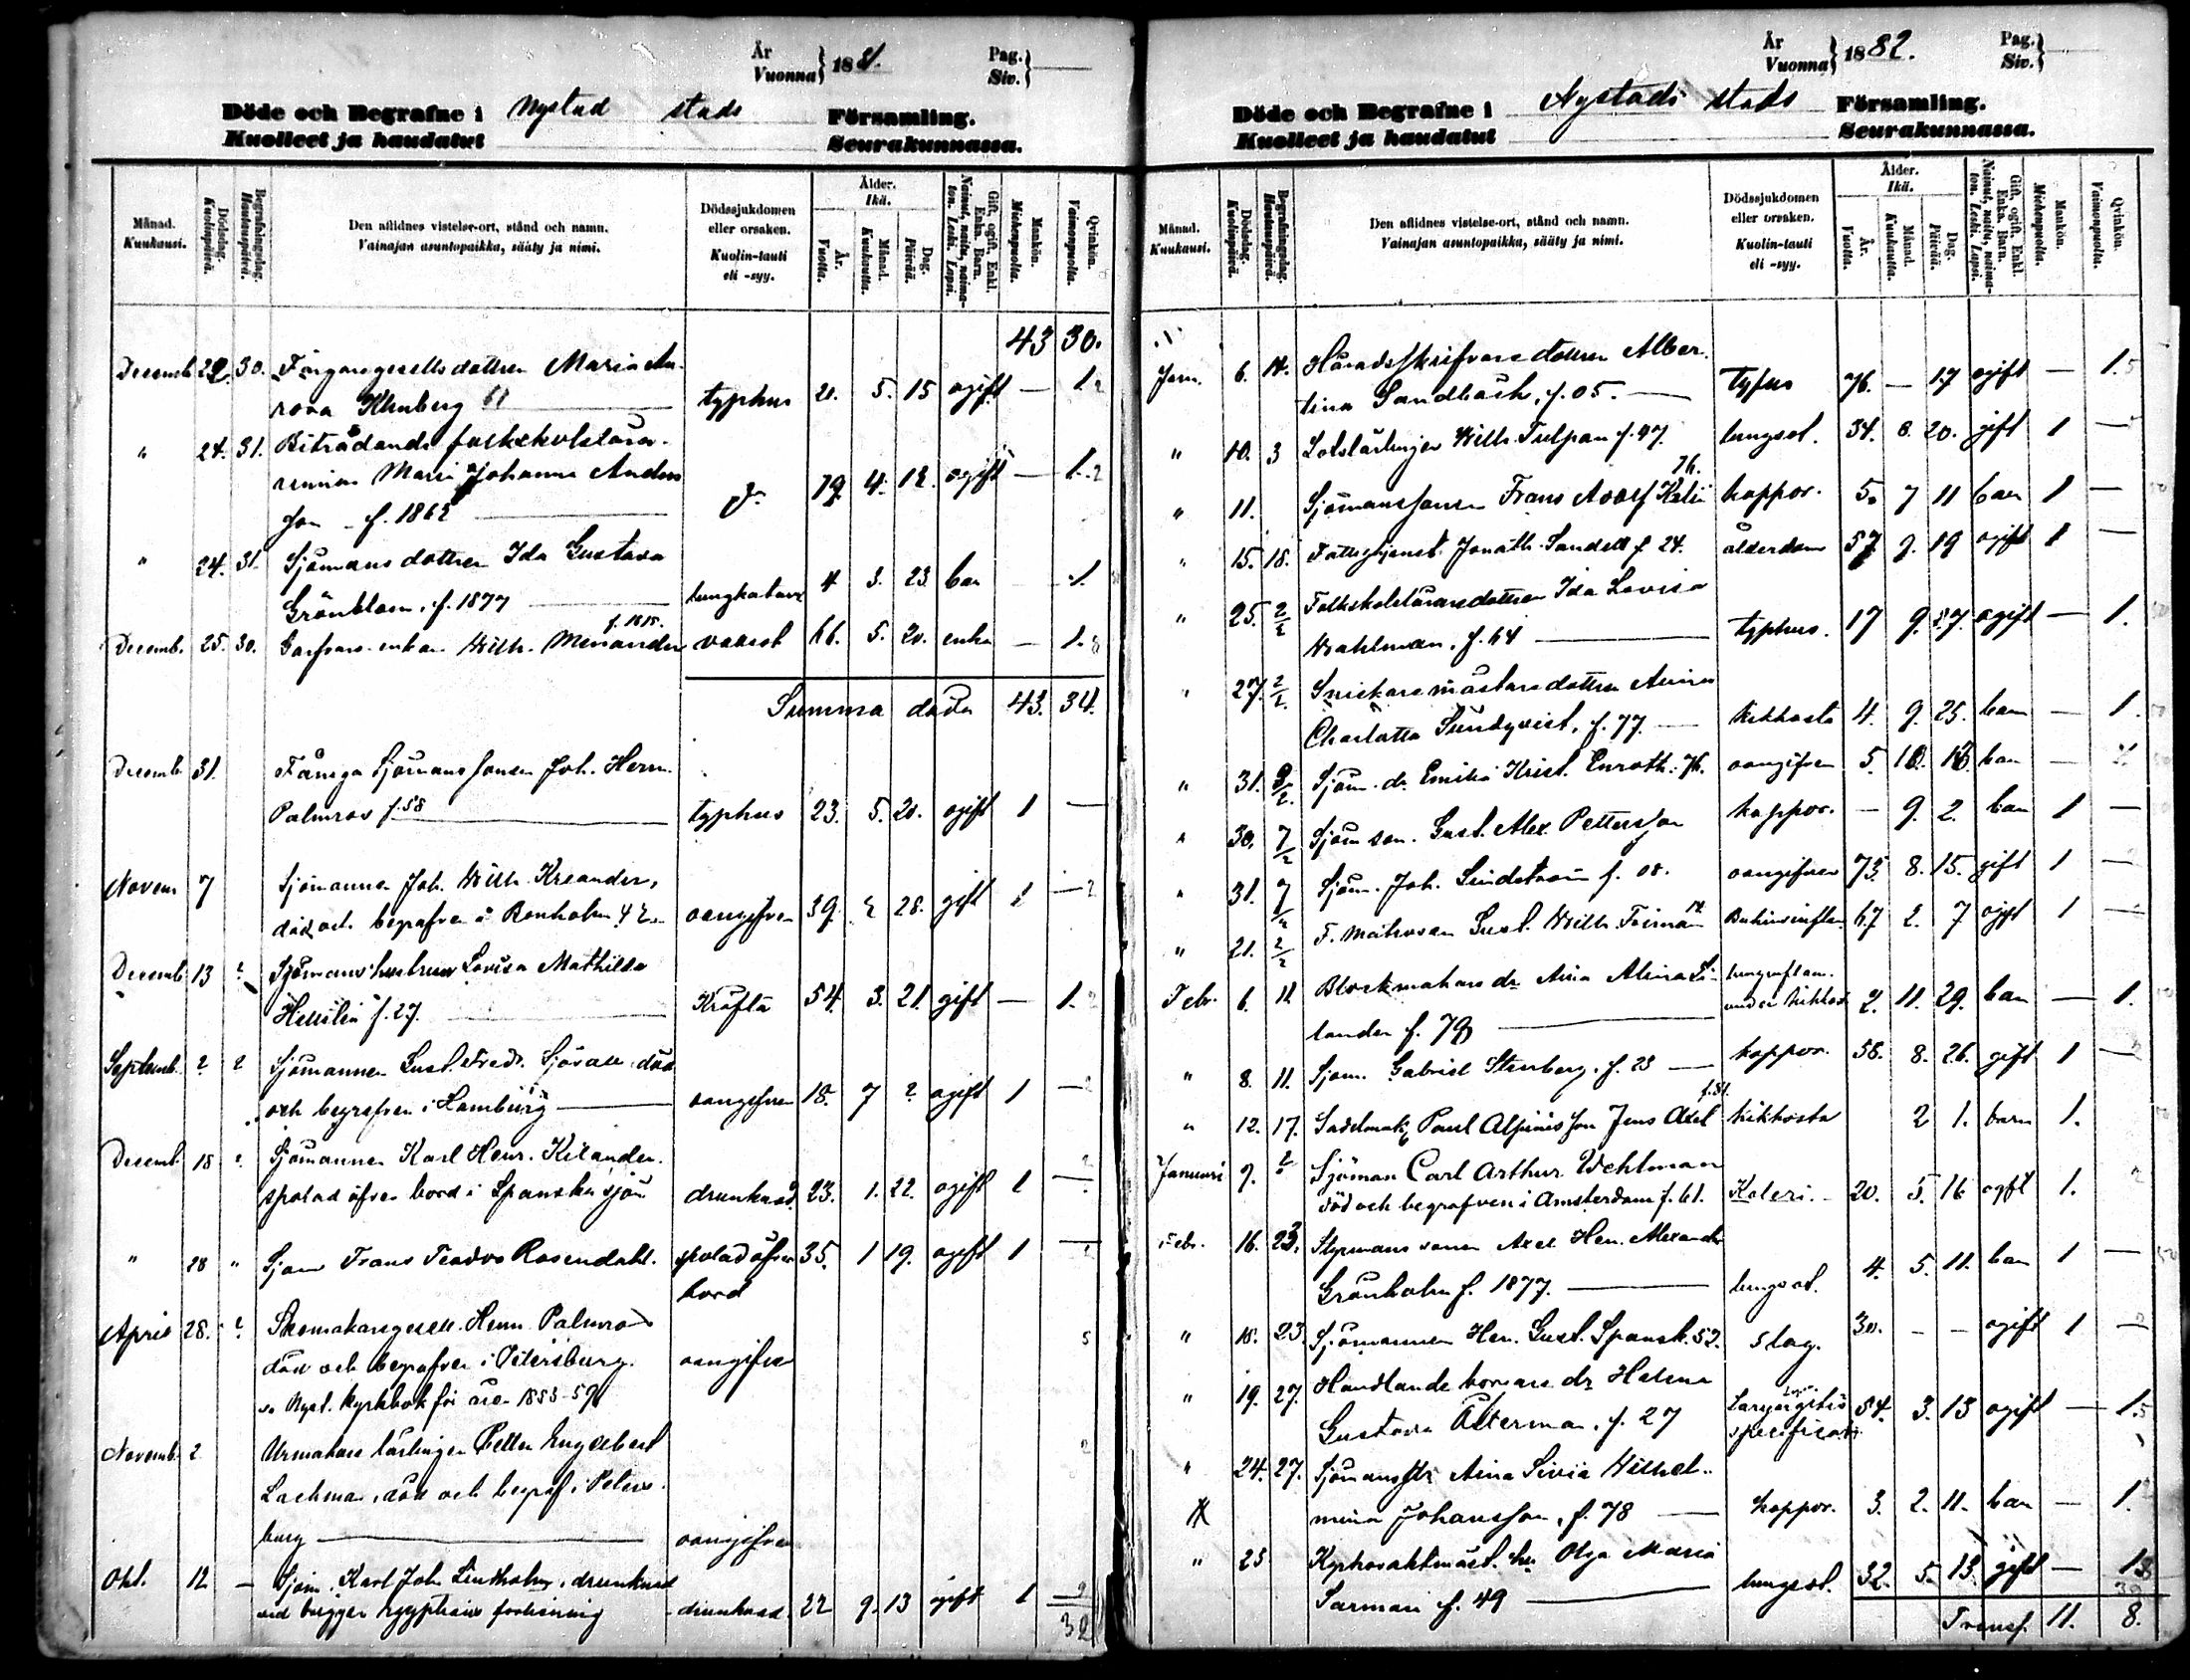 År
Vuonna } 1881.
Pag.
Siv. }
Döde och Begrafne i Nystad stads Församling.
Kuolleet ja haudatut Seurakunnassa.
Månad.
Kuukausi.
Dödsdag.
Kuolinpäivä.
Begrafningsdag.
Hautauspäivä.
Den aflidnes vistelse-ort, stånd och namn.
Vainajan asuntopaikka, sääty ja nimi.
Dödssjukdomen
eller orsaken.
Kuolin-tauti
eli -syy.
Ålder.
Ikä.
År.
Vuotta.
Månad.
Kuukautta.
Dag.
Päivää.
Gift, ogift, Enkl.
Enka, Barn.
Nainut, naitu, naima-
ton. Leski. Lapsi.
Mankön.
Miehenpuolta.
Qvinkön.
Vaimonpuolta.
43 30.
Decemb 22. 30. Färgaregesells dottren Maria
typhus 20. 5. 15 ogift — 1
" 24. 31. Biträdande folkskolelära-
rinnan Maria Johanna Anders
son f. 1862 19 4. 12. ogift — 1.
" 24. 31. Sjömans dottren Ida Gustava
Grönblom, f. 1877 lungkatarr 4 3. 23 barn 1.
f. 1815.
Decemb. 25. 30. Garfvare enkan Wilh. Menander 66. 5. 20. enka — 1.
Summa döda 43. 34.
Decemb. 31. Sjömans sonen Joh. Herm.
Palmros f. 58 typhus 23. 5. 20. ogift 1 —
Novem 7 Sjömannen Joh. Wilh. Kreander,
död och begrafven å Bonholm oangifven 39. 28. gift 1 —
Decemb. 13 ? Sjömanshustrun Lovisa Mathilda
f. 27. Kräfta 54. 3. 21. gift — 1.
Septemb. ? ? Sjömannen Gust. Fredr. Sjövall, död
och begrafven i Hamburg oangifven 18. 7 ? ogift 1 —
Decemb. 18 ? Sjömannen Karl Henr. Kilander.
spolad öfver bord i Spanska sjön drunknad. 23. 1. 22. ogift 1 —
" 28 " Sjöm Frans Teodor Rosendahl. spolad öfver 35. 1 19. ogift 1 —
bord
April 28. ? Skomakaregesell. Herm. Palmros
död och begrafven i Petersburg. oangifven
Nyst. kyrkbok för åren 1853-59
Novemb. 2 Urmakare lärlingen Petter Engelbert
Lachman, död och begraf. i Peters-
burg oangifven
Okt. 12 — Sjöm. Karl Joh. Lindholm, drunknad
drunknad. 22 9. 13 ogift 1
32
År
Vuonna } 1882.
Pag.
Siv. }
Döde och Begrafne i Nystads stads Församling.
Kuolleet ja haudatut Seurakunnassa.
Månad.
Kuukausi.
Dödsdag.
Kuolinpäivä.
Begrafningsdag.
Hautauspäivä.
Den aflidnes vistelse-ort, stånd och namn.
Vainajan asuntopaikka, sääty ja nimi.
Dödssjukdomen
eller orsaken.
Kuolin-tauti
eli -syy.
Ålder.
Ikä.
År.
Vuotta.
Månad.
Kuukautta.
Dag.
Päivää.
Gift, ogift, Enkl.
Enka, Barn.
Nainut, naitu, naima-
ton. Leski. Lapsi.
Mankön.
Miehenpuolta.
Qvinkön.
Vaimonpuolta.
Jan. 6. 14. Häradsskrifvare dottren Alber-
tina Sandbäck, f. 05. — Tyfus 76. — 17 ogift — 1.
" 10. 3 Lotslärlingen Wilh. Tulpan f. 47. lungsot. 34. 8. 20. gift 1 —
76.
" 11. Sjömanssonen Frans Adolf koppor. 5. 7 11 barn 1 —
" 15. 18. Jonath. Sandell f. 24. ålderdom 57 9. 19 ogift 1 —
" 25. 2/2 Folkskolelärare dottren Ida Lovisa
Wahlman. f. 64 typhus. 17 9. 27. ogift — 1.
" 27. 2/2 Snickaremästare dottren
Charlotta Sundqvist, f. 77. — kikhosta 4. 9. 25. barn — 1.
" 31. Sjöm. dr. Emilia Krist. Enroth. 76. oangifven 5. barn —
" 30. 7/2 Sjöm son. Gust. Alex. Pettersson koppor. — 9. 2. barn 1 —
" 31. 7/2 Sjöm. Joh. Lindström f. 08. oangifven 73. 8. 15. gift 1 —
" 21. 2/2 F. Matrosen Gust. Wilh. 67 2. 7 ogift 1 —
Febr. 6. 11 Blockmakare dr Aina Alina Li- lunginflam.
lander f. 79 under kikhost 2. 11. 29. barn — 1.
" 8. 11. Sjöm. Gabriel Stenberg. f. 23 — koppor. 58. 8. 26. gift 1 —
f. 81.
" 12. 17. Sadelmak. Paul Alpinis son Jens Axel kikhosta 2 1. barn 1.
Januari 9. ? Sjöman Carl Arthur Wehlman
död och begrafven i Amsterdam f. 61. Koleri. — 20. 5. 16 ogift 1.
Febr. 16. 23. Styrmans sonen Axel Hen. Alexander
Grönholm f. 1877. — lungsot. 4. 5. 11. barn 1 —
" 18. 23. Sjömannen Hen. Gust. Spansk. 52. slag. 30. — — ogift 1 —
" 19. 27. Handlande borgare dr Helena
Gustava Åkerman. f. 27 54. 3. 13 ogift — 1.
" 24. 27. Sjömans dtr Aina Sivia Wilhel-
mina Johansson, f. 78 — koppor. 3. 2. 11. barn — 1.
" 23 Kyrkovaktmäst. hu Olga Maria
Sarman f. 49 lungsot. 32. 5. 13. gift — 1
Transf. 11. 8.